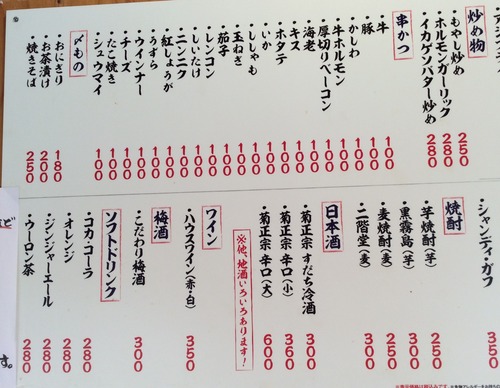 炒め物
・もやし炒め 250
・ホルモンガーリック 280
・イカゲソバター炒め 280
串かつ
・牛 100
・豚 100
・かしわ 100
・牛ホルモン 100
・厚切りベーコン 100
・海老 100
・キス 100
・ホタテ 100
・いか 100
・ししゃも 100
・玉ねぎ 100
・茄子 100
・レンコン 100
・しいたけ 100
・ニンニク 100
・紅しょうが 100
・うずら 100
・ウインナー 100
・チーズ 100
・たこ焼き 100
・シュウマイ 100
〆もの
・おにぎり 180
・お茶漬け 200
・焼きそば 250
・シャンティ・ガフ 350
焼酎
・芋焼酎(芋) 250
・黒霧島(芋) 300
・麦焼酎(麦) 250
・二階堂(麦) 300
日本酒
・菊正宗 すだち冷酒 300
・菊正宗 辛口(小) 360
・菊正宗 辛口(大) 600
※他、地酒いろいろあります!
ワイン
・ハウスワイン(赤・白) 350
梅酒
・こだわり梅酒 300
ソフト・ドリンク
・コカ・コーラ 280
・オレンジ 280
・ジンジャーエール 280
・ウーロン茶 280
ど
す。